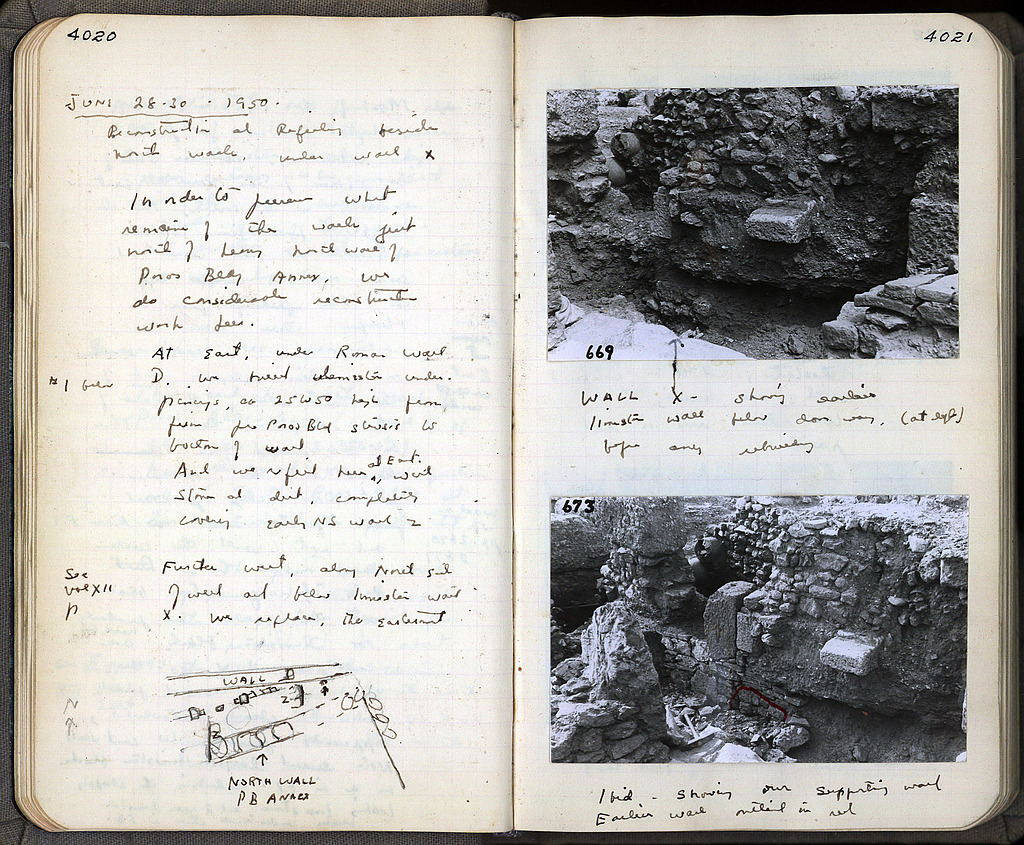 4020
JUNE 28-30 - 1950.
Reconstruction at Refeeling beside
north wall, under wall X
In order to preserve what
remains of the walls just
north of heavy north wall of
Poros Bldg Annex, we
do considerable reconstruction
work here.
At East, under Roman wall
* 1 below
D. we insert under-
pinnings, ca 25 W 50 high from
from Poros Bld to
bottom of wall
And we here at East, with
stone at , completely
covering early NS wall Z
Further west, along North side
See
vol XII
p
of west below limestone wall
X. we replace, the easternmost
WALL
Z
Z
N
NORTH WALL
PB ANNEX
4021
669
WALL X - showing earlier
limestone wall below door way, (at left)
before any rebuilding
673
Ibid - showing our supporting wall
Earlier wall outlined in red